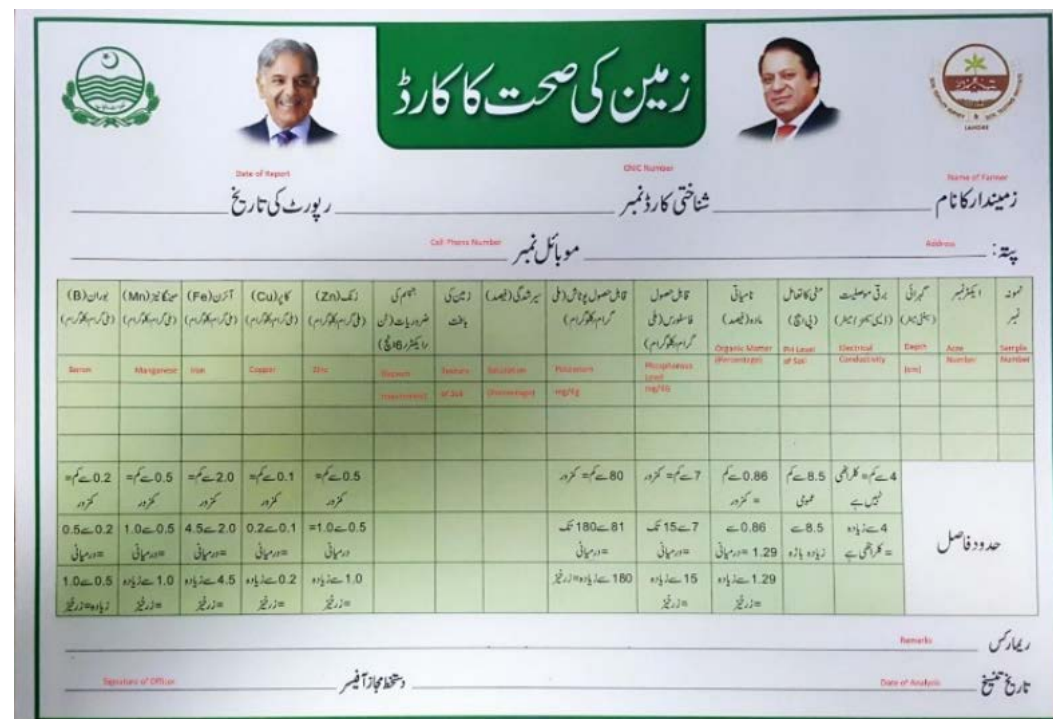 زمین کی صحت کا کارڈ
LAHORE
Name of Farmer CNIC Number Date of Report
زمیندار کا نام شناختی کارڈ نمبر رپورٹ کی تاریخ
Address Cell Phone Number
پتہ: موبائل نمبر
نمونہ نمبر
Sample Number
ایکڑ نمبر
Acre Number
گہرائی (سینٹی میٹر)
Depth (cm)
برقی موصلیت (ڈیسی سیمنز / میٹر)
Electrical Conductivity
مٹی کا تعامل (پی ایچ)
PH Level of Soil
نامیاتی مادہ (فیصد)
Organic Matter (Percentage)
قابل حصول فاسفورس (ملی گرام/کلوگرام)
Phosphorous Level mg/Kg
قابل حصول پوٹاش (ملی گرام/کلوگرام)
Potassium mg/Kg
سیرشدگی (فیصد)
Saturation (Percentage)
زمین کی بافت
Texture of Soil
جپسم کی ضروریات (ٹن / ایکڑ/6 انچ)
Gypsum
زنک (Zn) (ملی گرام/کلوگرام)
Zinc
کاپر (Cu) (ملی گرام/کلوگرام)
Copper
آئرن (Fe) (ملی گرام/کلوگرام)
Iron
مینگانیز (Mn) (ملی گرام/کلوگرام)
Manganese
بوران (B) (ملی گرام/کلوگرام)
Boron
حدود فاصل
4 سے کم = کلراٹھی نہیں ہے
8.5 سے کم عمومی
0.86 سے کم = کمزور
7 سے کم = کمزور
80 سے کم = کمزور
0.5 سے کم = کمزور
0.1 سے کم = کمزور
2.0 سے کم = کمزور
0.5 سے کم = کمزور
0.2 سے کم = کمزور
4 سے زیادہ = کلراٹھی ہے
8.5 سے زیادہ باڑہ
0.86 سے 1.29 = درمیانی
7 سے 15 تک = درمیانی
81 سے 180 تک = درمیانی
0.5 سے 1.0 = درمیانی
0.1 سے 0.2 = درمیانی
2.0 سے 4.5 = درمیانی
0.5 سے 1.0 = درمیانی
0.2 سے 0.5 = درمیانی
1.29 سے زیادہ = زرخیز
15 سے زیادہ = زرخیز
180 سے زیادہ = زرخیز
1.0 سے زیادہ = زرخیز
0.2 سے زیادہ = زرخیز
4.5 سے زیادہ = زرخیز
1.0 سے زیادہ = زرخیز
0.5 سے 1.0 زیادہ = زرخیز
Remarks
ریمارکس
Date of Analysis Signature of Officer
تاریخ تنسیخ دستخط مجاز آفیسر